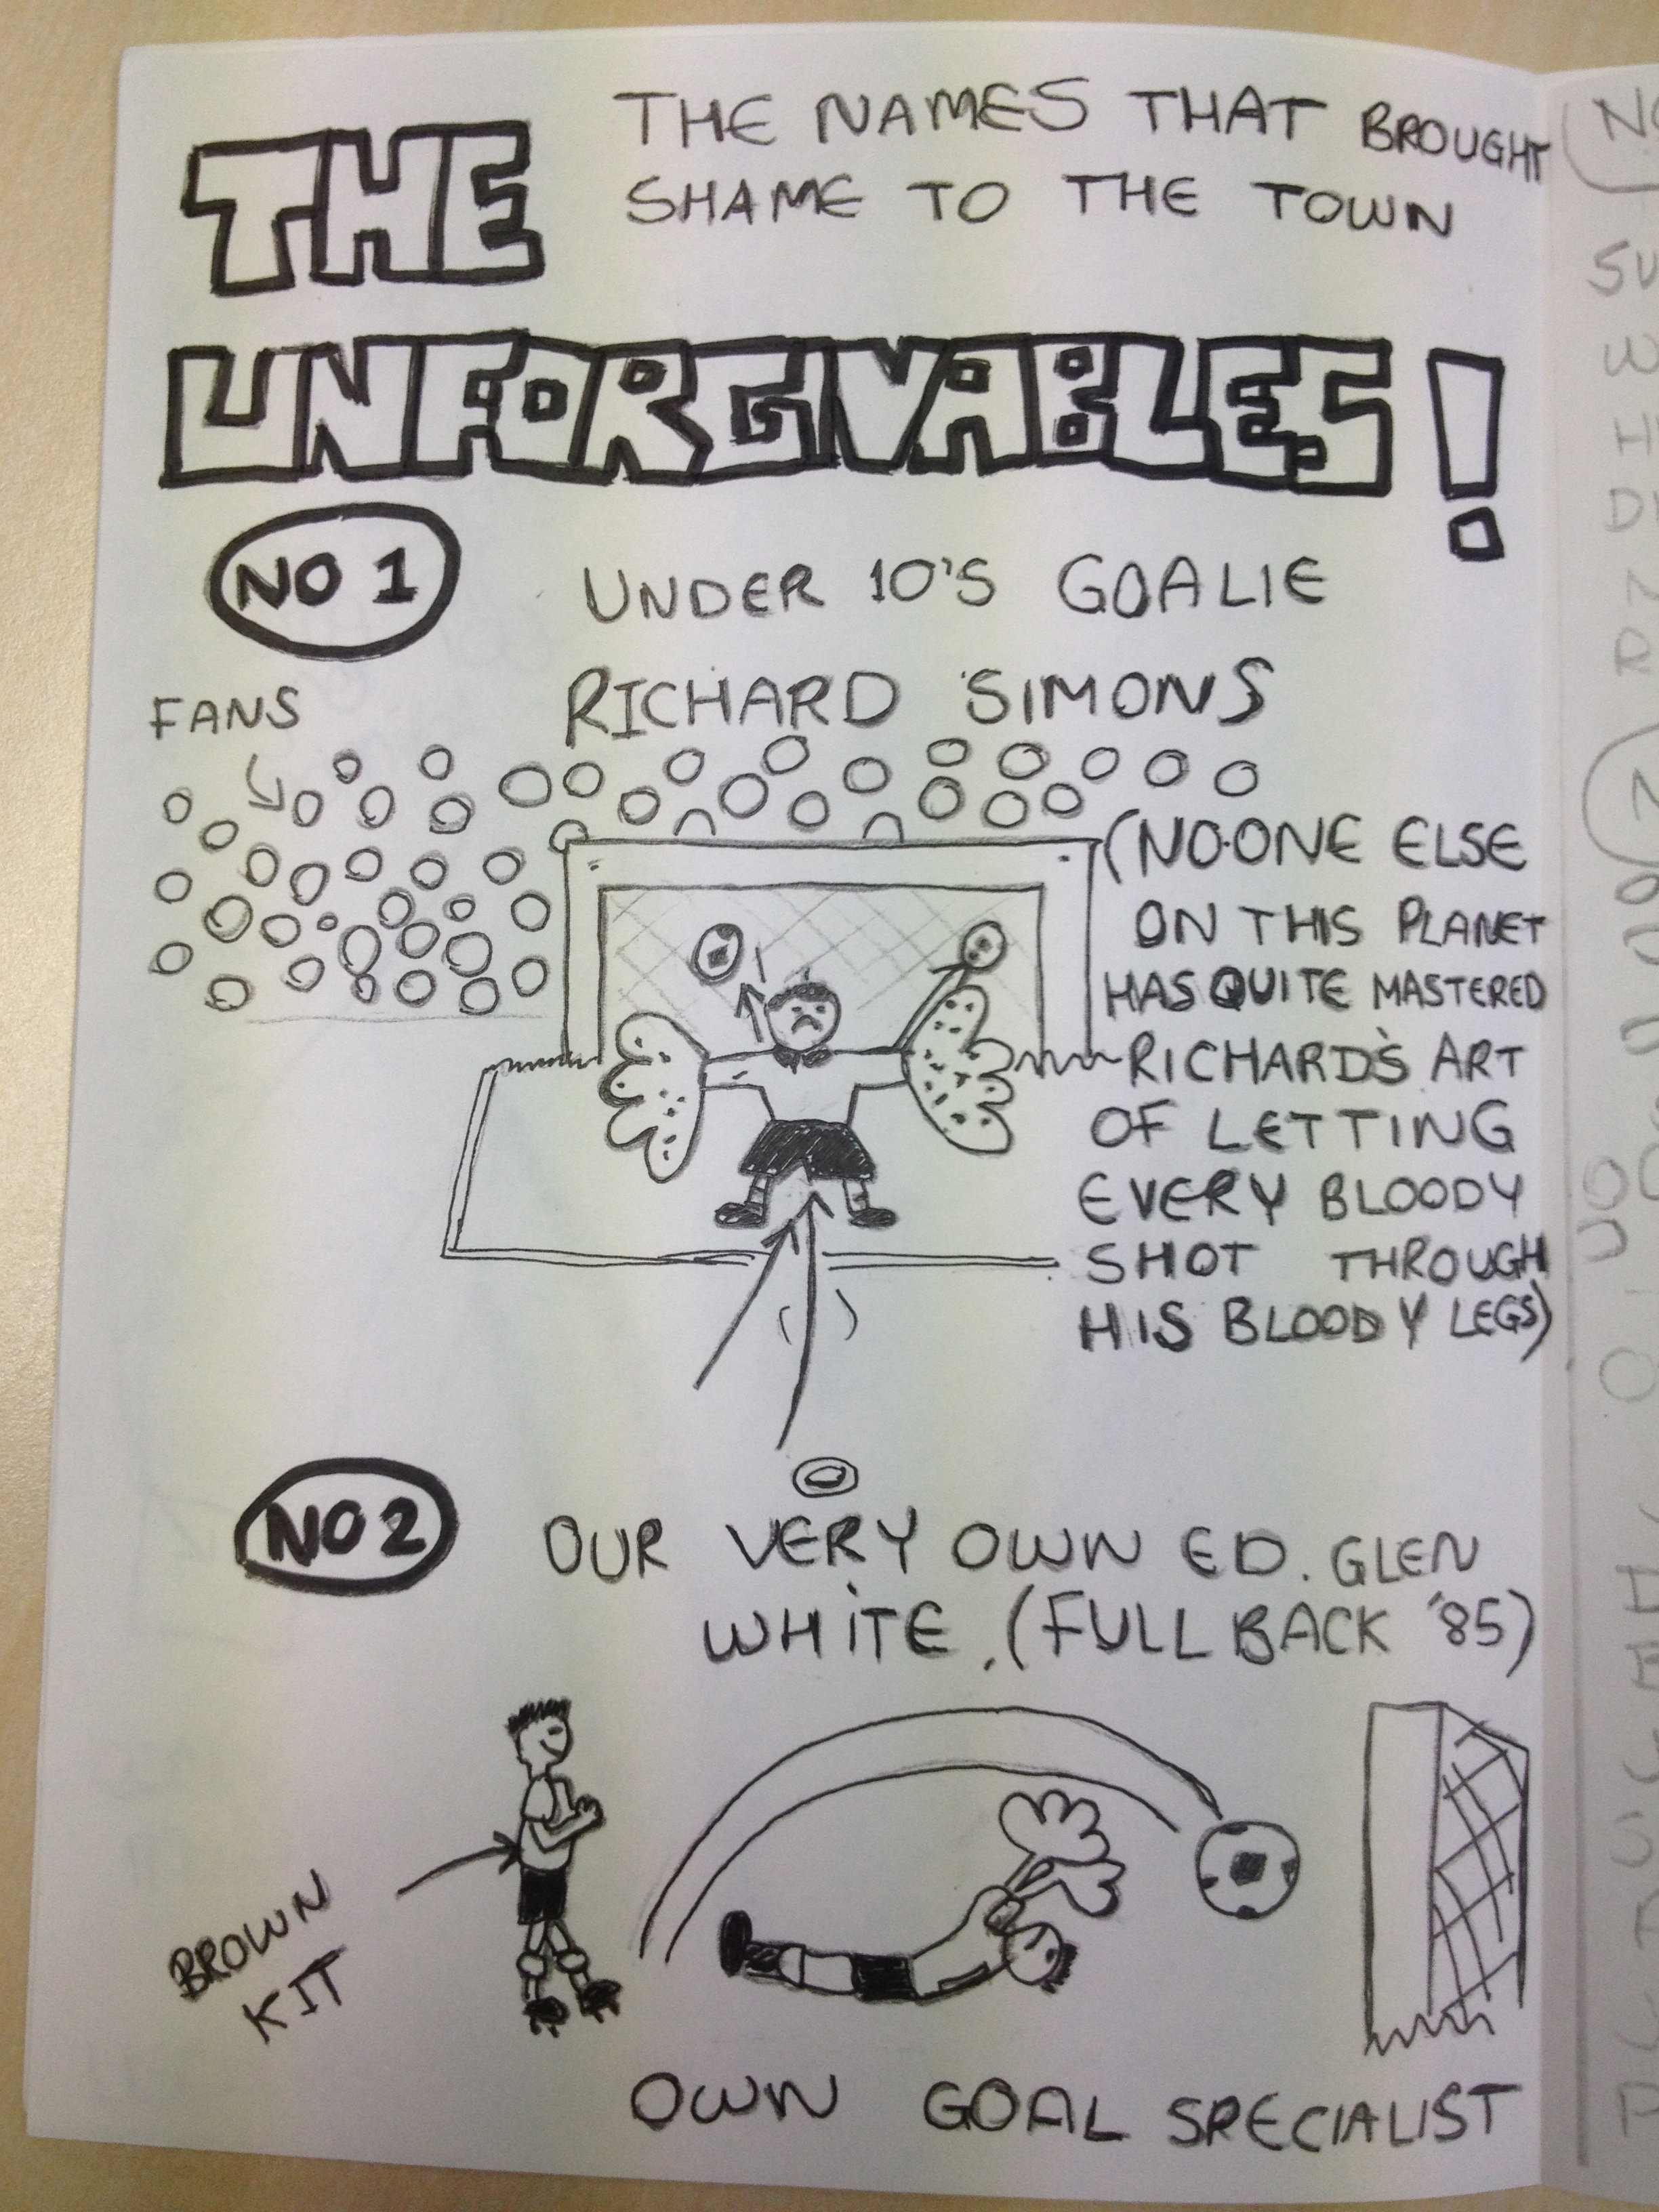 THE
THE NAMES THAT BROUGHT
SHAME TO THE TOWN
UNFORGIVABLES!
NO 1
UNDER 10'S GOALIE
RICHARD SIMONS
FANS
(NO-ONE ELSE
ON THIS PLANET
HAS QUITE MASTERED
RICHARD'S ART
OF LETTING
EVERY BLOODY
SHOT THROUGH
HIS BLOODY LEGS)
NO 2
OUR VERY OWN ED. GLEN
WHITE. (FULL BACK '85)
BROWN
KIT
OWN GOAL SPECIALIST